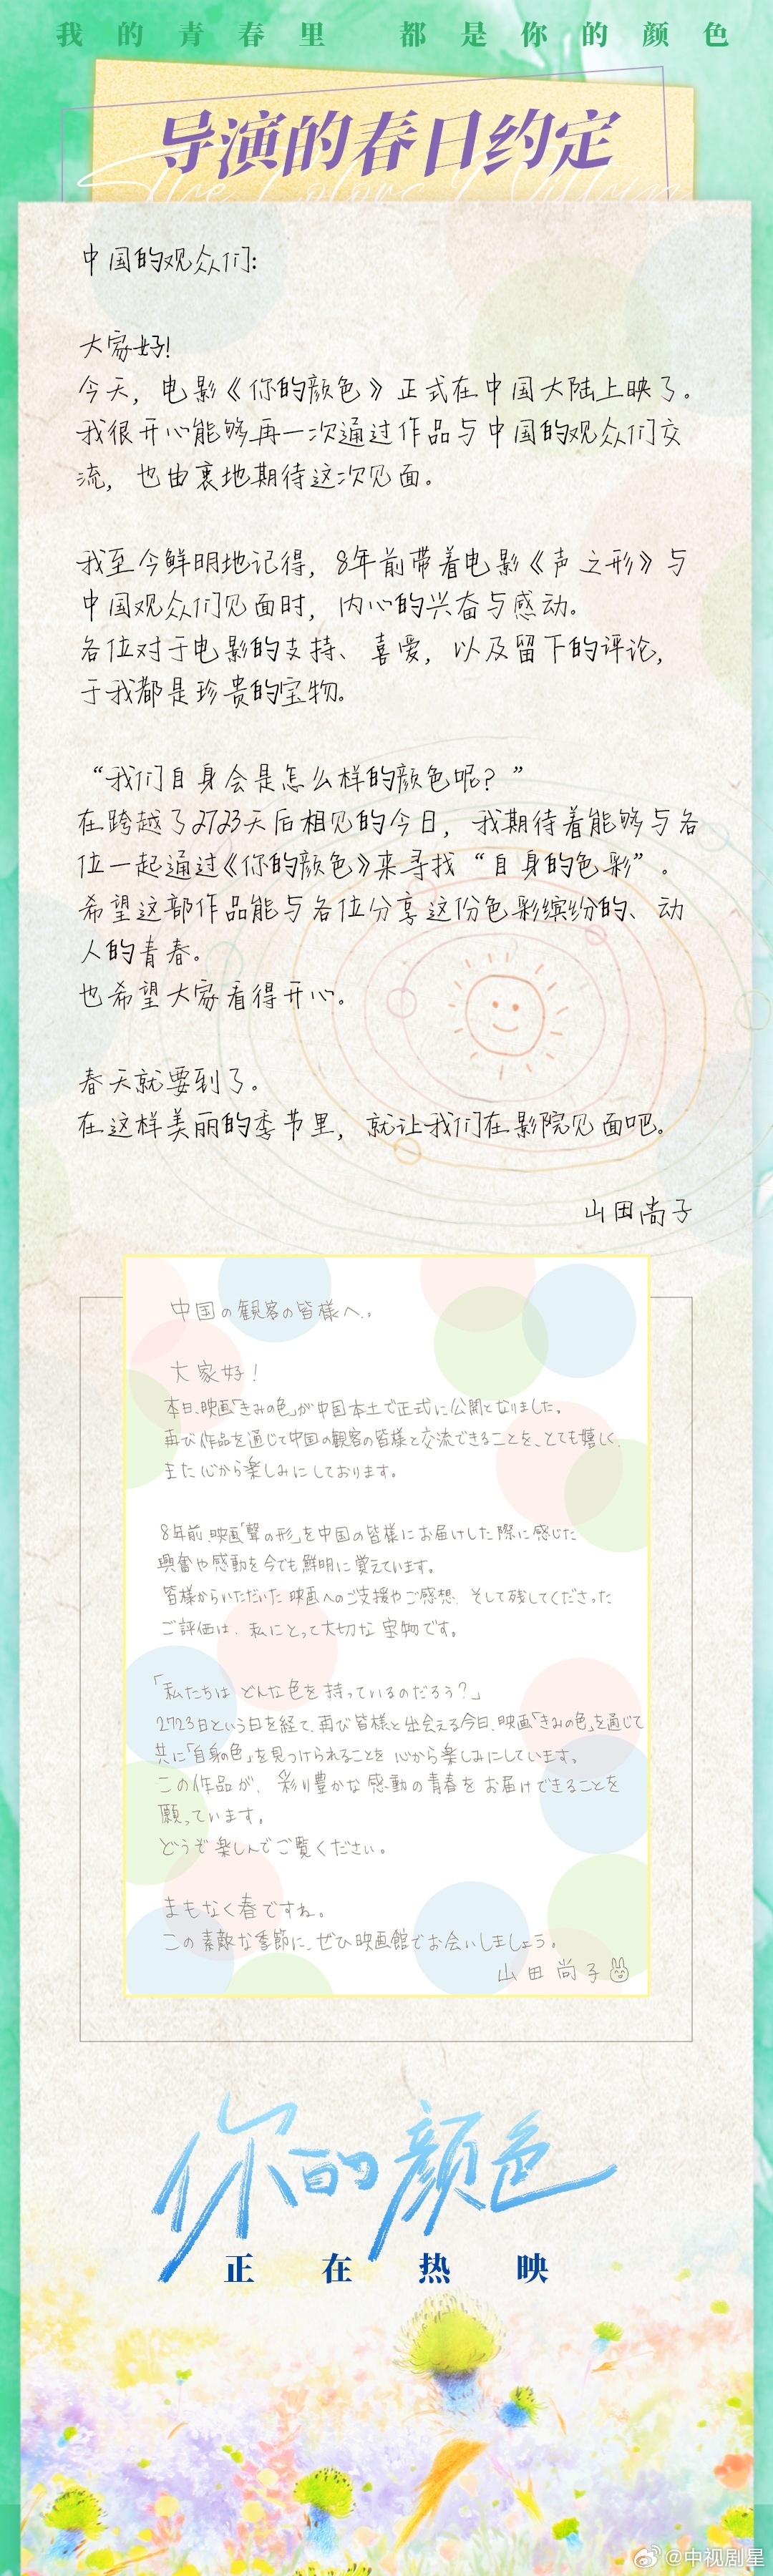 我的青春里 都是你的颜色
导演的春日约定
The Colors Within
中国的观众们:
大家好!
今天, 电影《你的颜色》正式在中国大陆上映了。
我很开心能够再一次通过作品与中国的观众们交
流, 也由衷地期待这次见面。
我至今鲜明地记得, 8年前带着电影《声之形》与
中国观众们见面时, 内心的兴奋与感动。
各位对于电影的支持、喜爱, 以及留下的评论,
于我都是珍贵的宝物。
“我们自身会是怎么样的颜色呢? ”
在跨越了2723天后相见的今日, 我期待着能够与各
位一起通过《你的颜色》来寻找“自身的色彩”。
希望这部作品能与各位分享这份色彩缤纷的、动
人的青春。
也希望大家看得开心。
春天就要到了。
在这样美丽的季节里, 就让我们在影院见面吧。
山田尚子
中国の観客の皆様へ。
大家好!
本日、映画「きみの色」が中国本土で正式に公開となりました。
再び作品を通じて中国の観客の皆様と交流できることを、とても嬉しく、
また心から楽しみにしております。
8年前、映画「聲の形」を中国の皆様にお届けした際に感じた
興奮や感動を今でも鮮明に覚えています。
皆様からいただいた映画へのご支援やご感想、そして残してくださった
ご評価は、私にとって大切な宝物です。
「私たちはどんな色を持っているのだろう?」
2723日という日を経て、再び皆様と出会える今日、映画「きみの色」を通じて
共に「自身の色」を見つけられることを心から楽しみにしています。
この作品が、彩り豊かな感動の青春をお届けできることを
願っています。
どうぞ楽しんでご覧ください。
まもなく春ですね。
この素敵な季節に、ぜひ映画館でお会いしましょう。
山田尚子
你的颜色
正在热映
@中视剧星